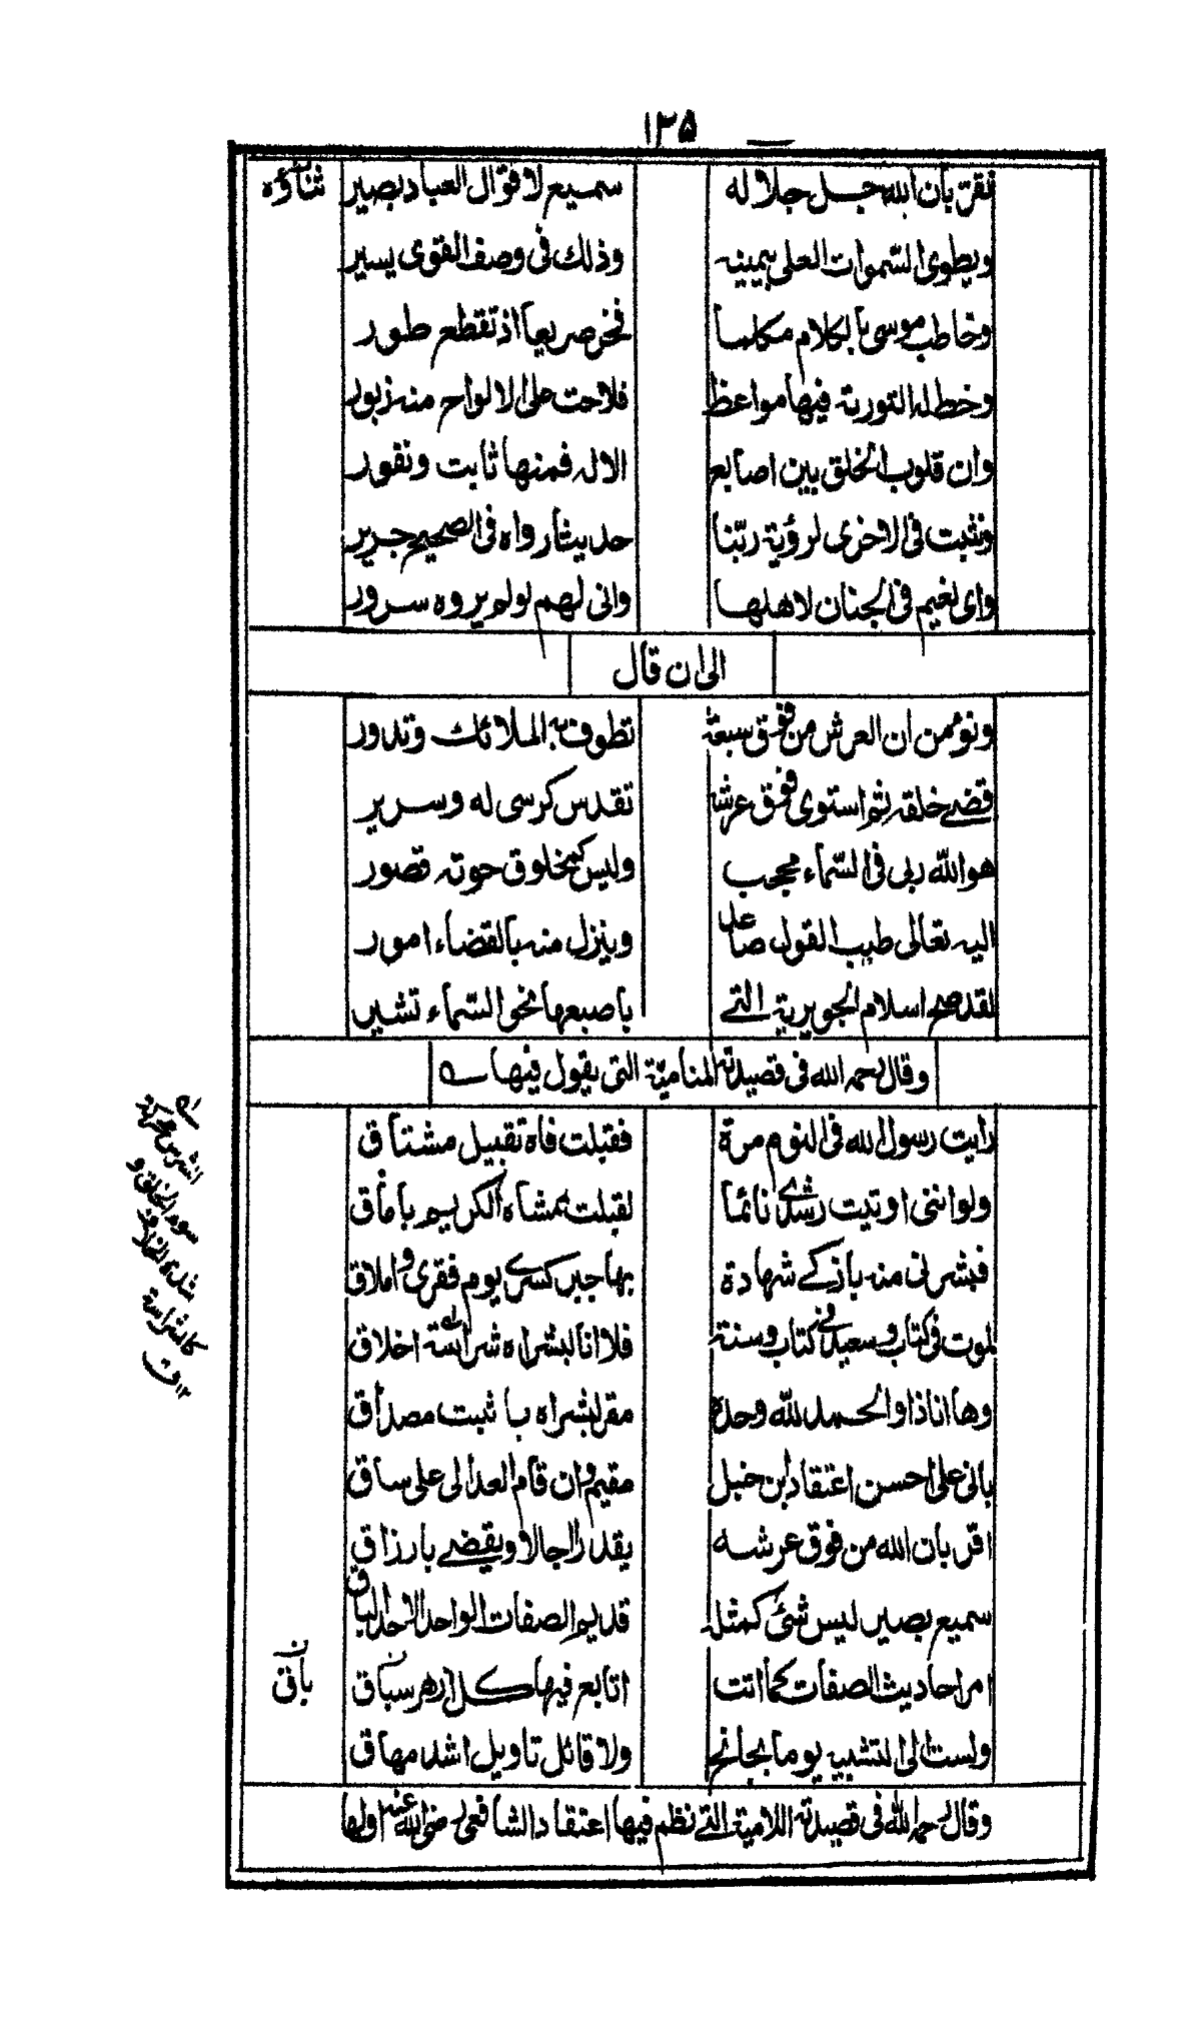 ١٣۵
نقر بان الله جل جلاله سميع لاقوال العباد بصير ثناؤه
ويطوى السموات العلى بيمينه وذلك فى وصف القوى يسير
وخاطب موسى بالكلام مكلما فخر صريعا اذ تقطع طور
وخط له التورية فيها مواعظ فلاحت على الالواح منه زبور
وان قلوب الخلق بين اصابع الاله فمنها ثابت ونفور
ونثبت فى الاخرى لرؤية ربّنا حديثا رواه فى الصحيح جرير
واى نعيم فى الجنان لاهلها وانى لهم لو لم يروه سرور
الى ان قال
ونؤمن ان العرش من فوق سبعة تطوف به الملائك وتدور
قضے خلقه ثم استوى فوق عرشه تقدس كرسى له وسرير
هو الله ربى فى السّماء محجب وليس كمخلوق حوته قصور
اليه تعالى طيب القول صاعد وينزل منه بالقضاء امور
لقد صح اسلام الجويرية التے باصبعها نحو السّماء تشير
وقال رحمه الله فى قصيدته المنامية التى يقول فيها
رايت رسول الله فى النوم مرة فقبلت فاه تقبيل مشتاق
ولو اننى اوتيت رشدے نائما لقبلت ممشاه الكريم باماق
فبشرنى منه بازكے شهادة بها جبر كسرے يوم فقرى و املاق
لموت فى كتاب وسعيد فى كتاب وسنة فلا انا لبشراه شراسة اخلاق
وها انا ذا والحمد لله وحده مقر لبشراه با ثبت مصداق
بانى على احسن اعتقاد ابن حنبل مقيم وان قام العدالى على ساق
اقر بان الله من فوق عرشه يقدر اجالا ويقضے بارزاق
سميع بصير ليس شئ كمثله قديم الصفات الواحد الاحد الباق
امر احاديث الصفات كما اتت اتابع فيها كل ازهر سباق
ولست الى التشبيه يوما بجانح ولا قائل تاويل اشد مهاق
وقال رحمه الله فى قصيدته اللامية التے نظم فيها اعتقاد الشافعى رضى الله عنه اولها
سوء الخلق و
شدة الخلاف
كالشراسة
١٢ ق